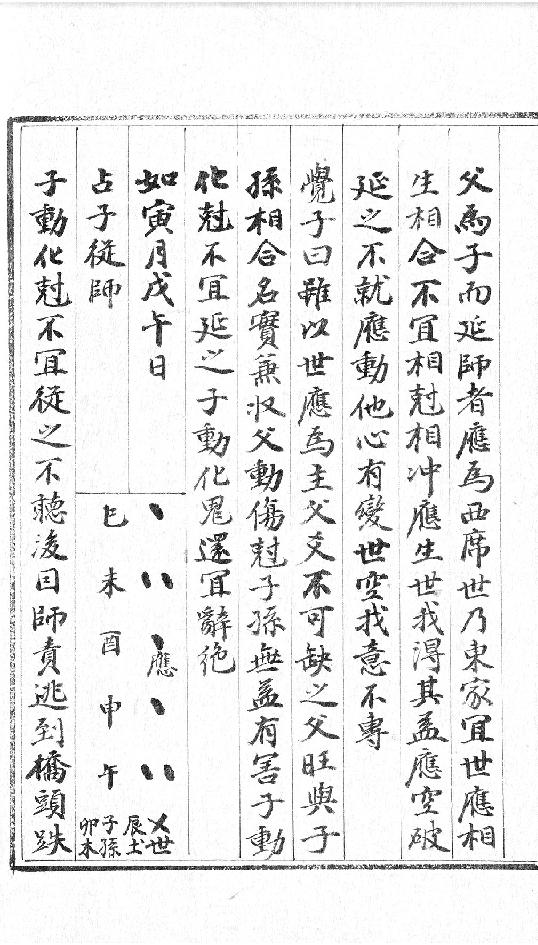 父為子而延師者應為西席世乃東家宜世應相
生相合不宜相尅相冲應生世我得其益應空破
延之不就應動他心有變世空我意不專
覺子曰雖以世應為主父爻不可缺之父旺與子
孫相合名實兼收父動傷尅子孫無益有害子動
化尅不宜延之子動化鬼還宜辭絶
如寅月戊午日
占子從師
應
乂世
巳未酉申午
辰土
子孫
卯木
子動化尅不宜從之不聽後因師責逃到橋頭跌